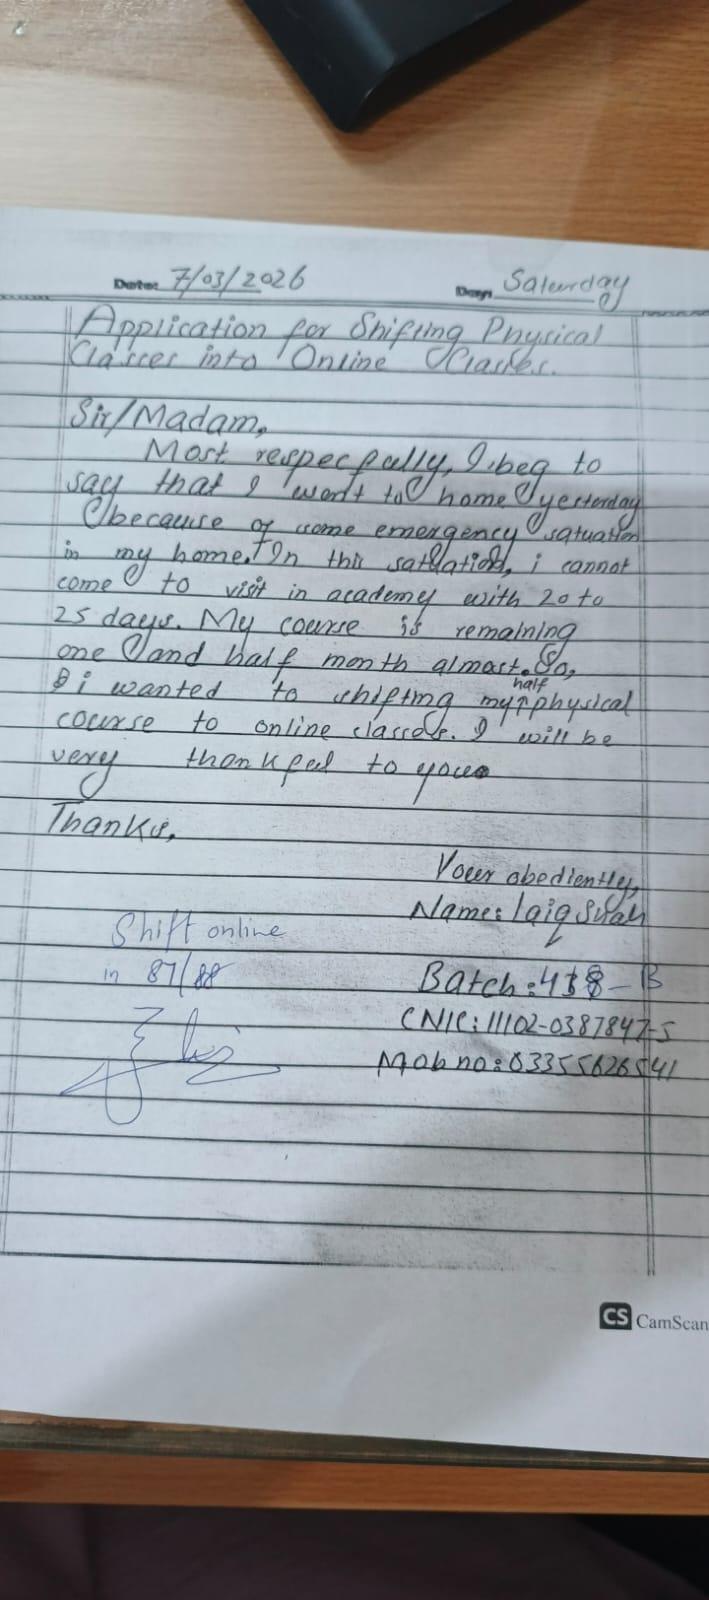 Date: 7/03/2026 Day: Saturday
Application for Shifting Physical
Classes into Online Classes.
Sir/Madam,
Most respecfully, I beg to
say that I went to home yesterday
because of some emergency satuation
in my home. In this satuation, i cannot
come to visit in academy with 20 to
25 days. My course is remaining
one and half month almost. So,
i wanted to shifting my half physical
course to online classes. I will be
very thankful to you
Thanks,
Your obediently,
Name: Laiq Shah
Shift online
in 87/88
Batch: 438-B
CNIC: 11102-0387847-5
Mob no: 03355626541
CS CamScan